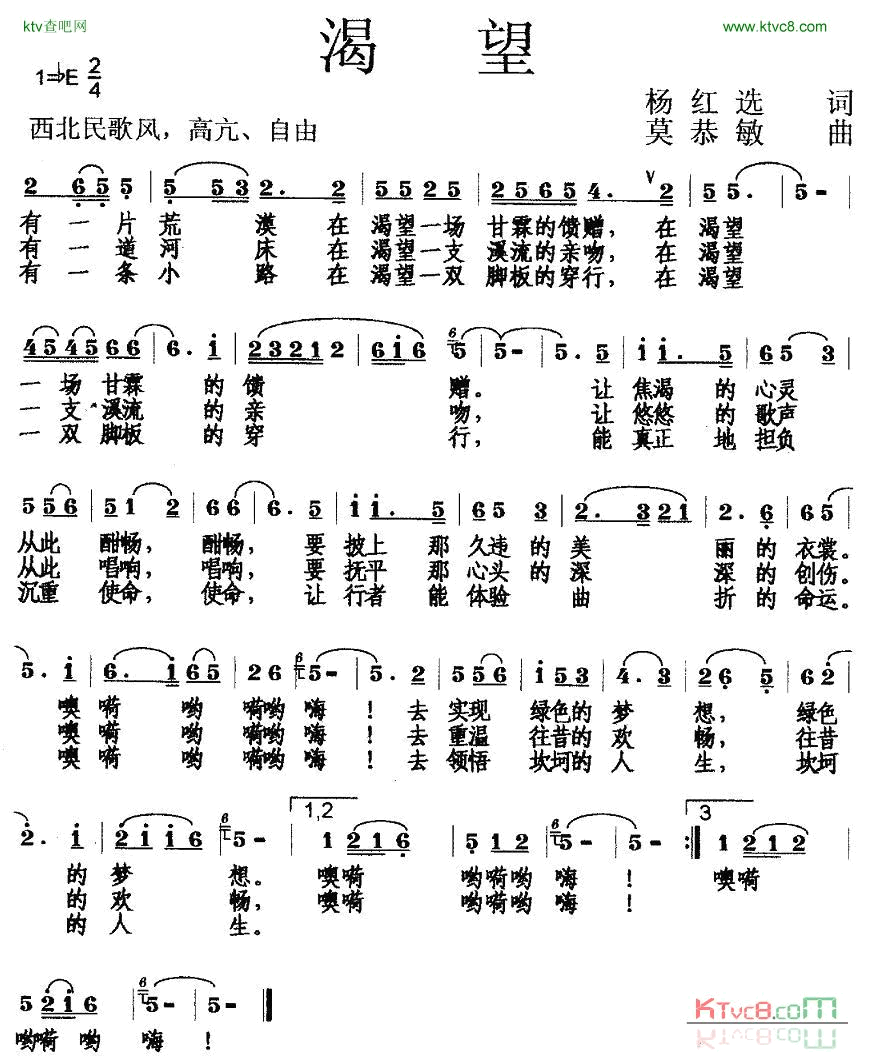 ktv查吧网
www.ktvc8.com
渴望
1=♭E 2/4
杨红选 词
西北民歌风，高亢、自由
莫恭敏 曲
2 6 5 5 | 5 5 3 2. 2 | 5 5 2 5 | 2 5 6 5 4. ∨ 2 | 5 5. | 5 - |
有一片荒漠在渴望一场甘霖的馈赠，在渴望
有一道河床在渴望一支溪流的亲吻，在渴望
有一条小路在渴望一双脚板的穿行，在渴望
4 5 4 5 6 6 | 6. i | 2 3 2 1 2 | 6 i 6 | 6 5 | 5 - | 5. 5 | i i. 5 | 6 5 3 |
一场甘霖的馈赠。让焦渴的心灵
一支溪流的亲吻，让悠悠的歌声
一双脚板的穿行，能真正地担负
5 5 6 | 5 1 2 | 6 6 | 6. 5 | i i. 5 | 6 5 3 | 2. 3 2 1 | 2. 6 | 6 5 |
从此酣畅，酣畅，要披上那久违的美丽的衣裳。
从此唱响，唱响，要抚平那心头的深深的创伤。
沉重使命，使命，让行者能体验曲折的命运。
5. i | 6. i 6 5 | 2 6 | 6 5 - | 5. 2 | 5 5 6 | i 5 3 | 4. 3 | 2 6 5 | 6 2 |
噢嗬哟嗬哟嗨！去实现绿色的梦想，绿色
噢嗬哟嗬哟嗨！去重温往昔的欢畅，往昔
噢嗬哟嗬哟嗨！去领悟坎坷的人生，坎坷
2. i | 2 i i 6 | 6 5 - | 1,2 1 2 1 6 | 5 1 2 | 6 5 - | 5 - :| 3 1 2 1 2 |
的梦想。噢嗬哟嗬哟嗨！噢嗬
的欢畅，噢嗬哟嗬哟嗨！
的人生。
5 2 i 6 | 6 5 - | 5 - ‖
哟嗬哟嗨！
KTvc8.com